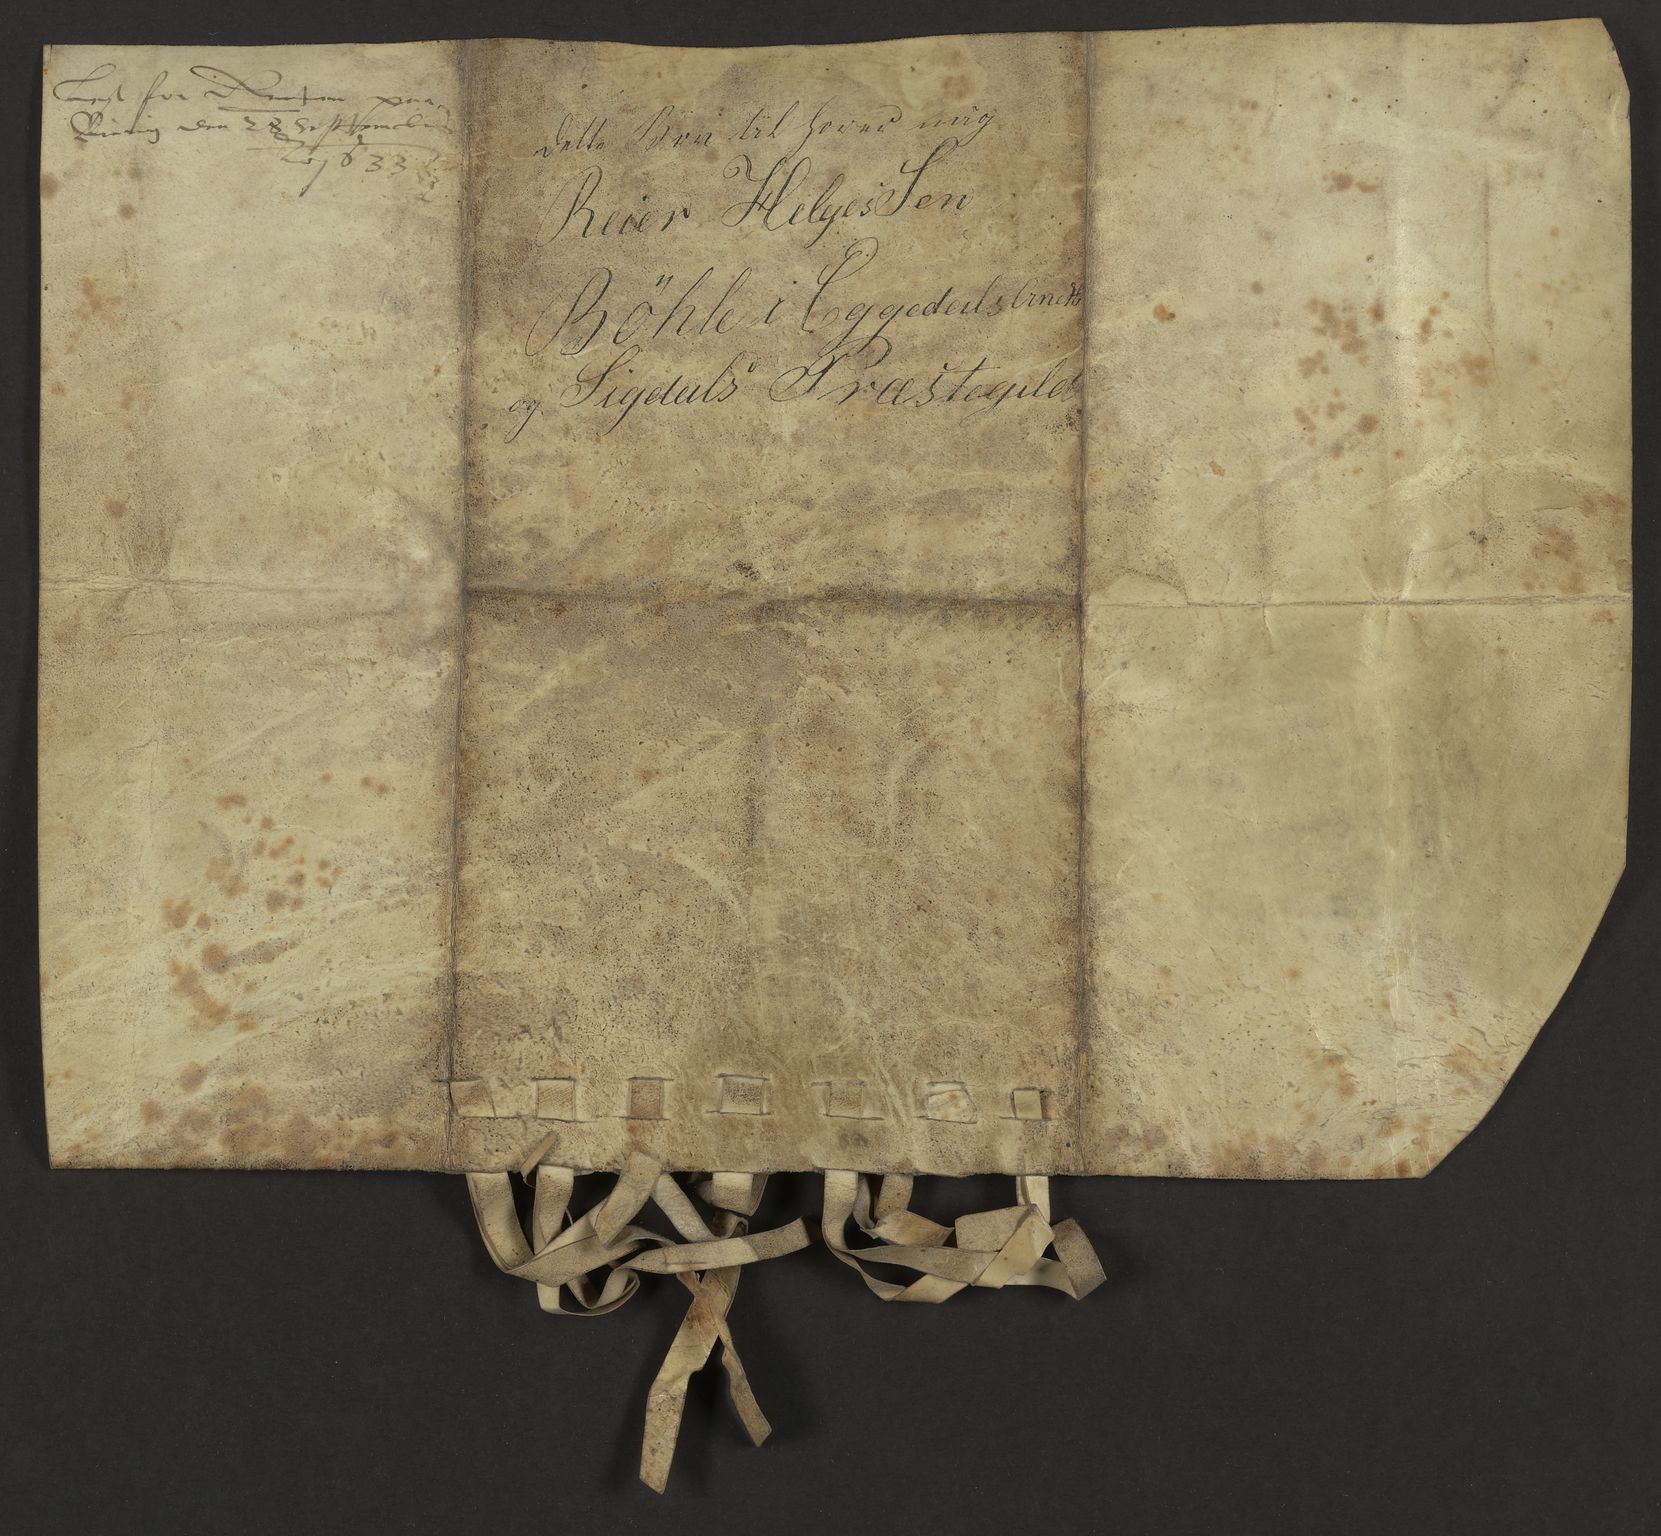 Lest for Retten paa
den 28 Septembris
Ao 1633
dette Brev til hører mig
Reier HelgesSen
Böhle i Eggedals Annex
og Sigdals Præstegild